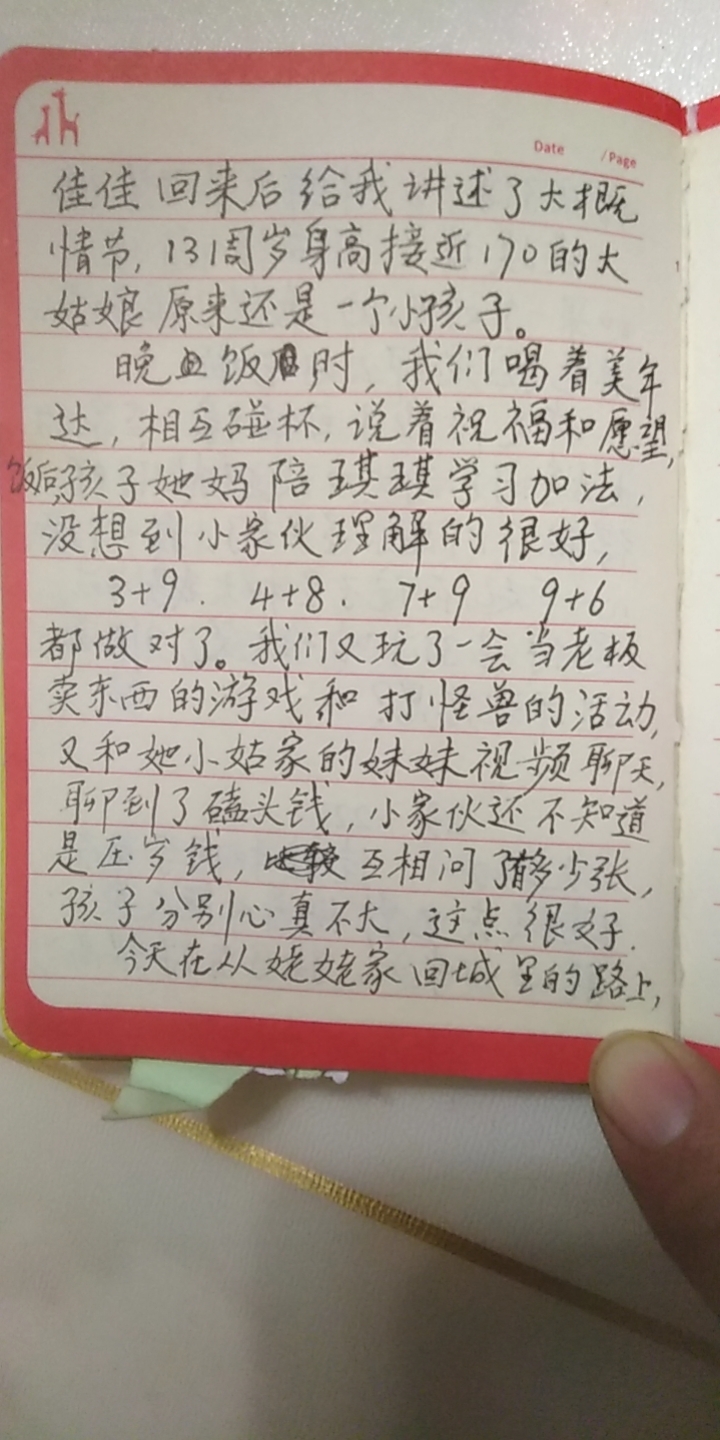 Date /Page
佳佳回来后给我讲述了大概
情节,13周岁身高接近170的大
姑娘原来还是一个小孩子。
晚饭时,我们喝着美年
达,相互碰杯,说着祝福和愿望,
饭后,孩子她妈陪琪琪学习加法,
没想到小家伙理解的很好,
3+9. 4+8. 7+9 9+6
都做对了。我们又玩了一会当老板
卖东西的游戏和打怪兽的活动,
又和她小姑家的妹妹视频聊天,
聊到了磕头钱,小家伙还不知道
是压岁钱,互相问了多少张,
孩子分别心真不大,这点很好.
今天在从姥姥家回城里的路上,